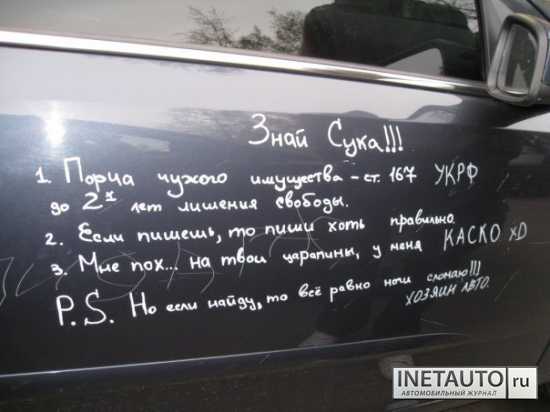 Знай Сука!!!
1. Порча чужого имущества – ст. 167 УКРФ
до 2х лет лишения свободы.
2. Если пишешь, то пиши хоть правильно.
3. Мне пох... на твои царапины, у меня КАСКО xD
P.S. Но если найду, то всё равно ноги сломаю!!!
ХОЗЯИН АВТО.
INETAUTO.ru
АВТОМОБИЛЬНЫЙ ЖУРНАЛ